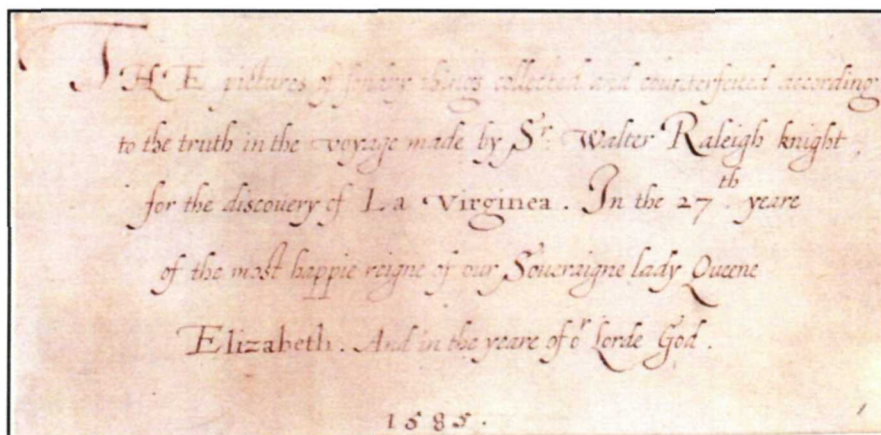 THE pictures of sondry things collected and counterfeited according
to the truth in the voyage made by Sr. Walter Raleigh knight,
for the discouery of La Virginea. In the 27th yeare
of the most happie reigne of our Soueraigne lady Queene
Elizabeth. And in the yeare of or Lorde God.
1585.